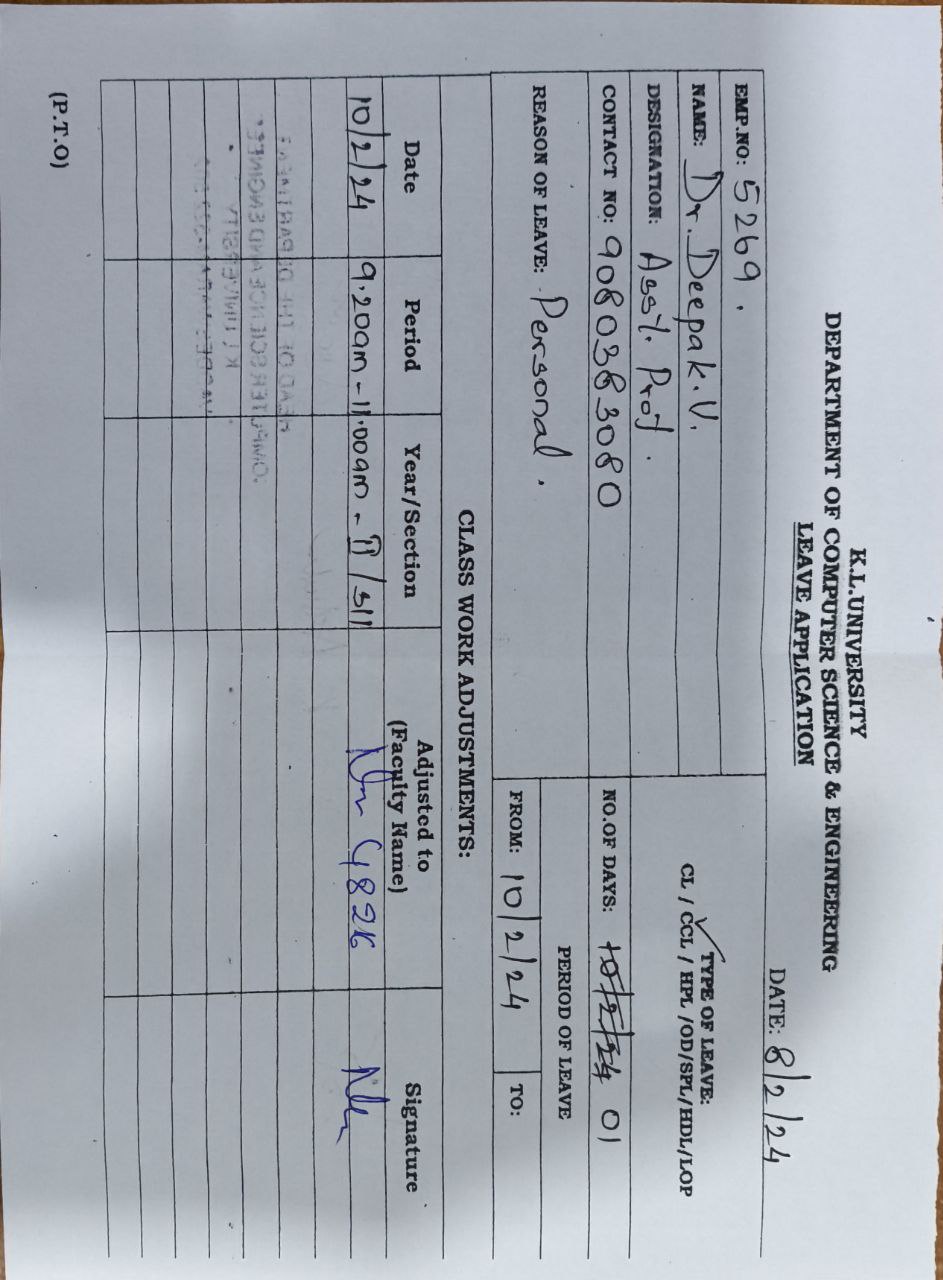 K.L.UNIVERSITY
DEPARTMENT OF COMPUTER SCIENCE & ENGINEERING
LEAVE APPLICATION
DATE: 8/2/24
EMP.NO: 5269.
NAME: Dr. Deepak. V.
DESIGNATION: Asst. Prof.
CONTACT NO: 9080363080
TYPE OF LEAVE:
CL / CCL / HPL /OD/SPL/HDL/LOP
NO.OF DAYS: 10/2/24 01
REASON OF LEAVE: Personal.
PERIOD OF LEAVE
FROM: 10/2/24 TO:
CLASS WORK ADJUSTMENTS:
Date Period Year/Section Adjusted to (Faculty Name) Signature
10/2/24 9.20am - 11.00am - II / S11
(P.T.O)